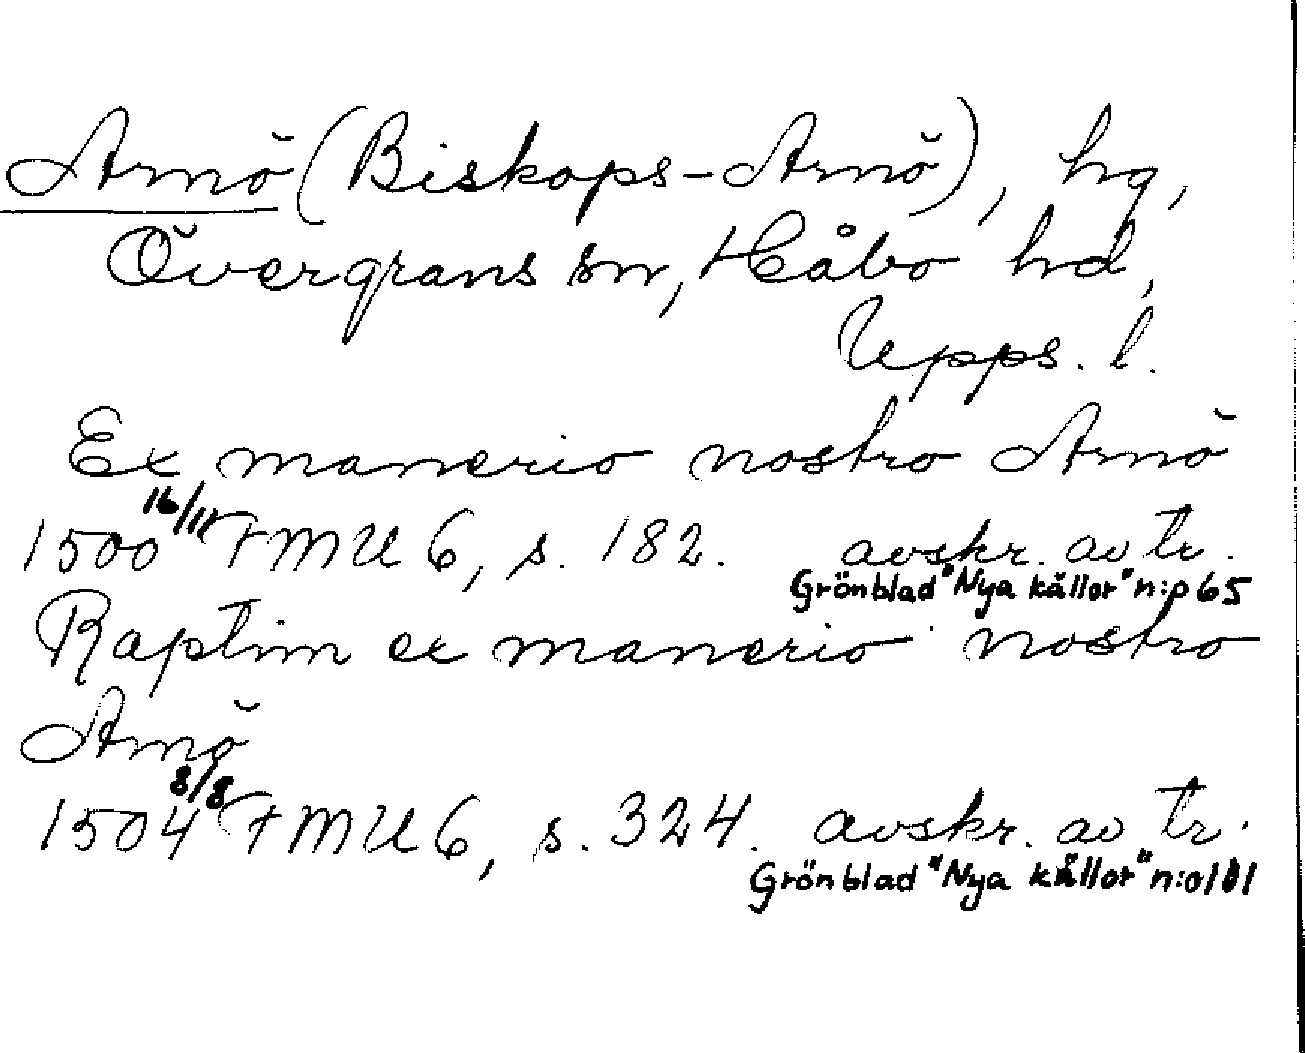 Arnö (Biskops-Arnö), hg,
Övergrans sn, Håbo hd,
Upps. l.
Ex manerio nostro Arnö
1500 16/11 FMU 6, s. 182. avskr. av tr.
Grönblad "Nya källor" n:o 65
Raptim ex manerio nostro
Arnö
1504 8/8 FMU 6, s. 324. avskr. av tr.
Grönblad "Nya källor" n:o